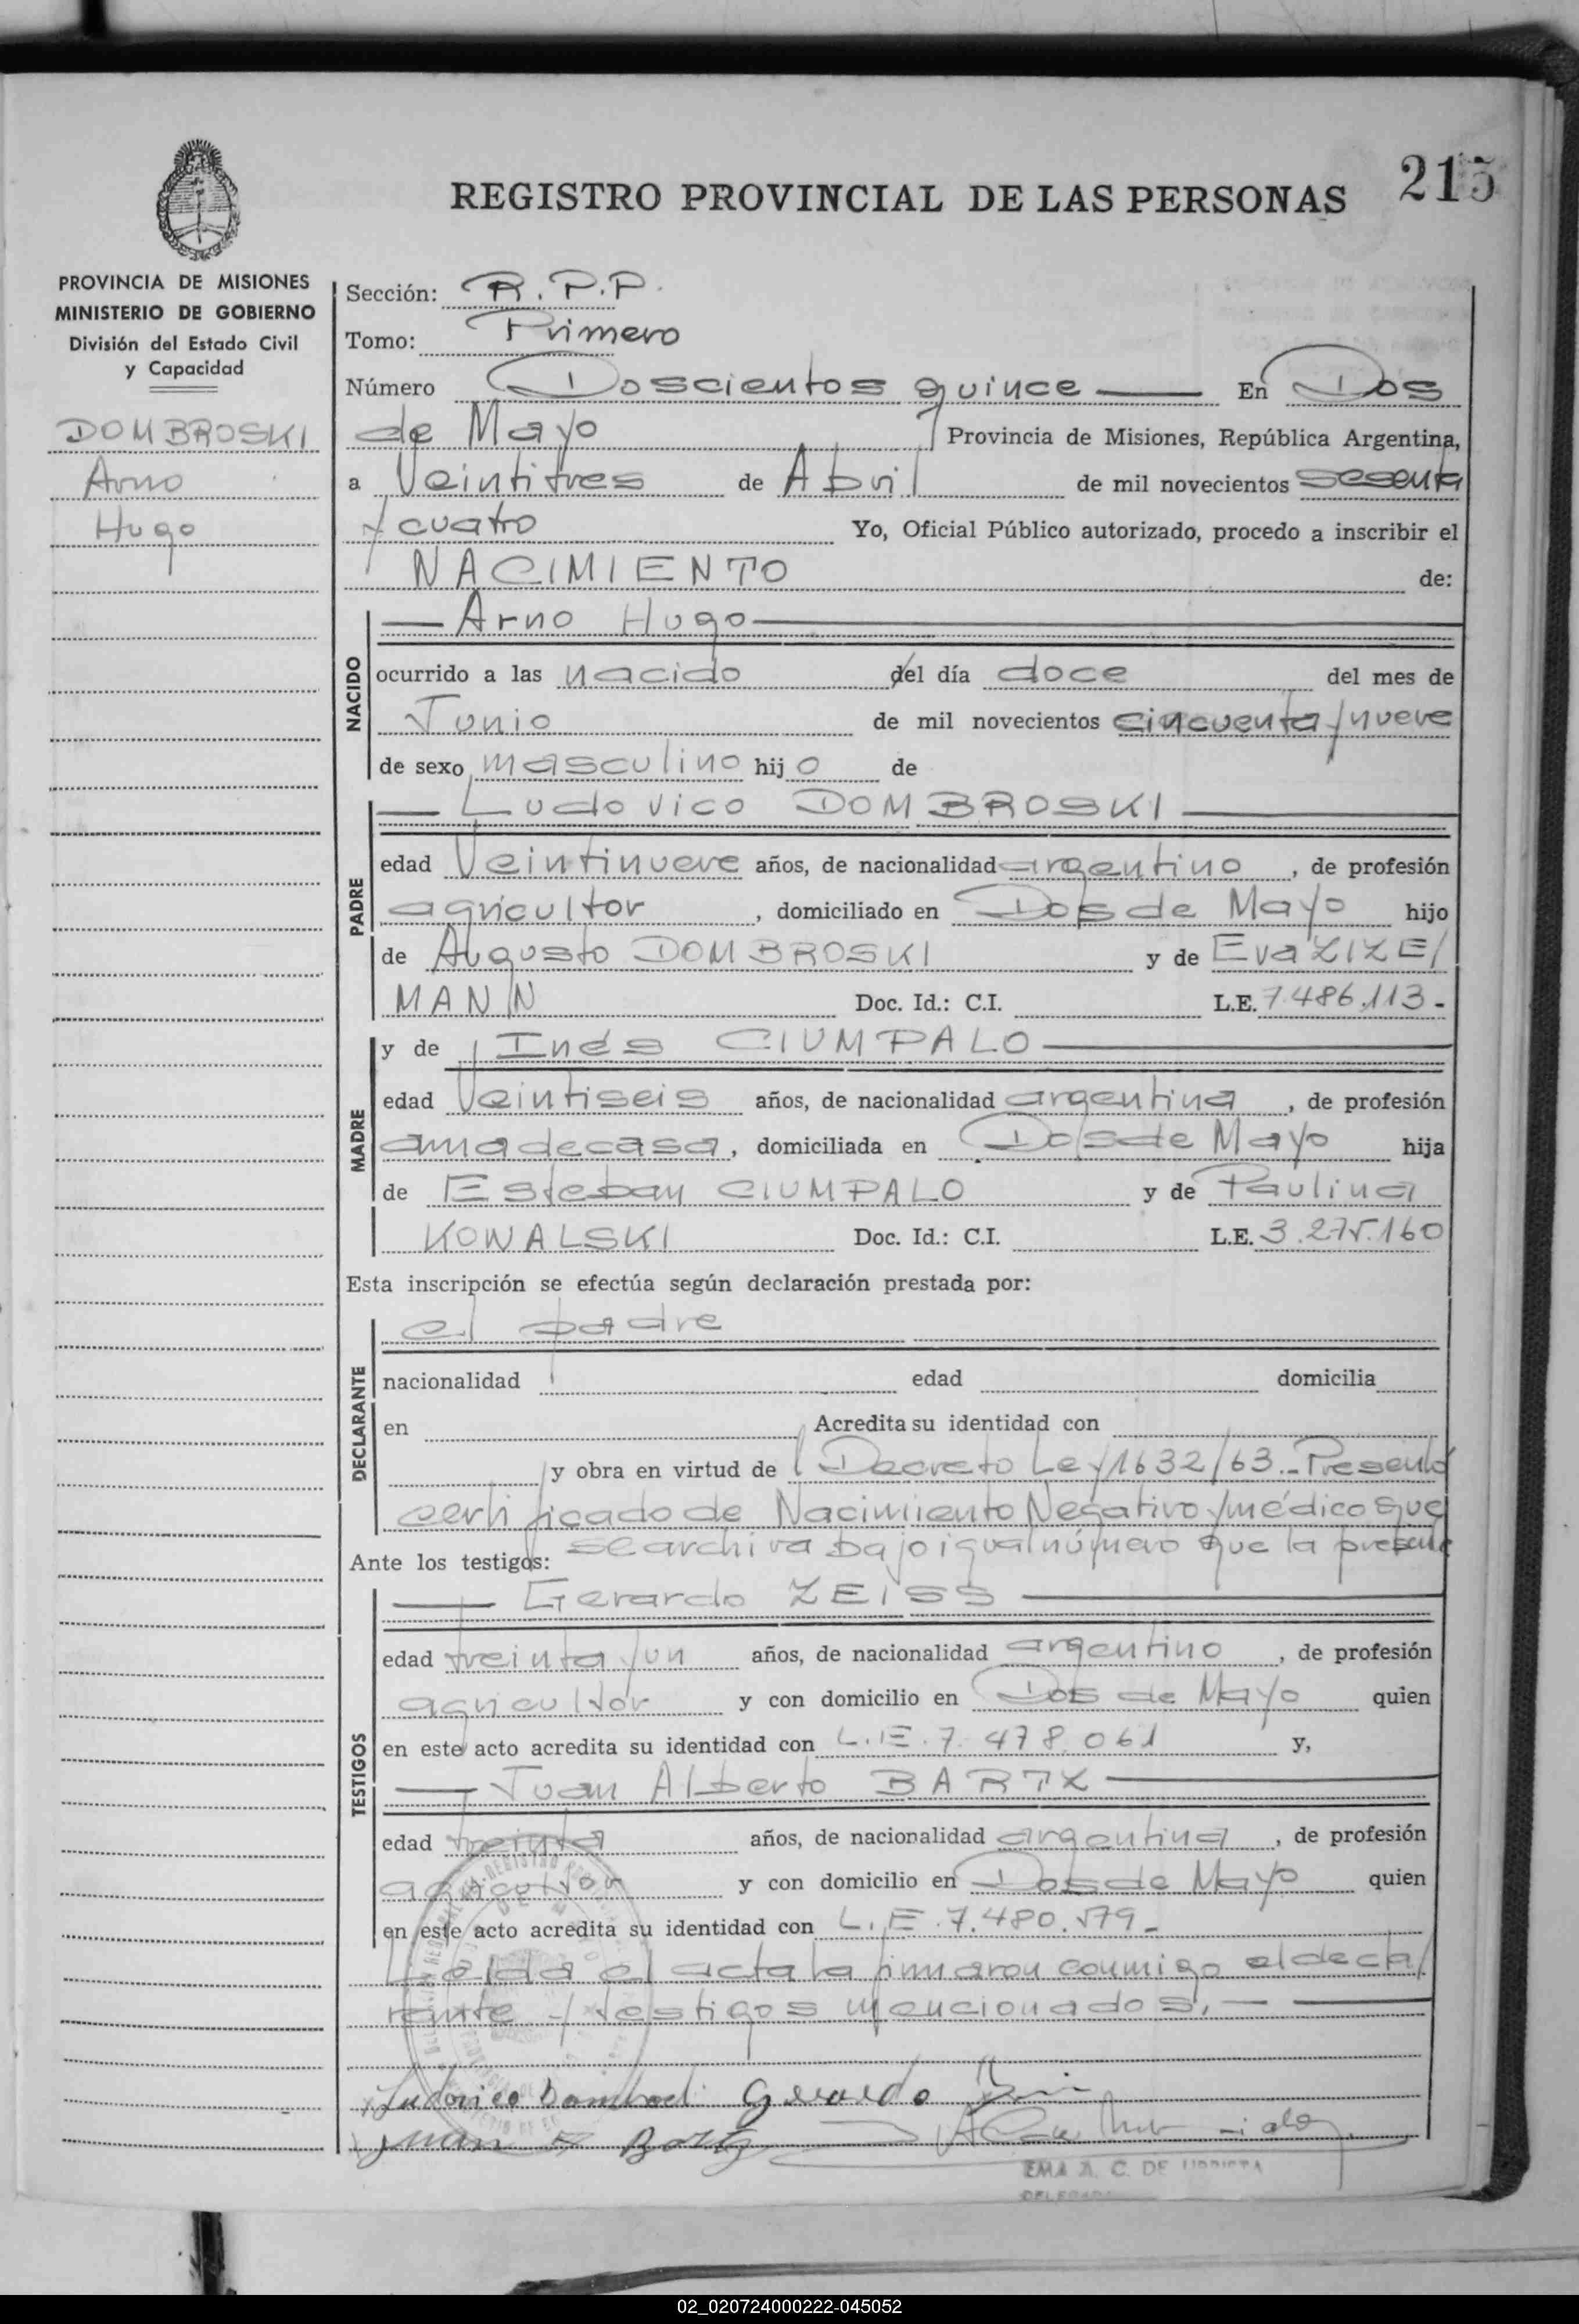 215
REGISTRO PROVINCIAL DE LAS PERSONAS
PROVINCIA DE MISIONES
MINISTERIO DE GOBIERNO
División del Estado Civil
y Capacidad
DOMBROSKI
Arno
Hugo
Sección: R.P.P.
Tomo: Primero
Número Doscientos quince En Dos
de Mayo Provincia de Misiones, República Argentina,
a Veintitres de Abril de mil novecientos sesenta
y cuatro Yo, Oficial Público autorizado, procedo a inscribir el
NACIMIENTO de:
NACIDO
Arno Hugo
ocurrido a las nacido del día doce del mes de
Junio de mil novecientos cincuenta y nueve
de sexo masculino hijo de
PADRE
Ludovico DOMBROSKI
edad Veintinueve años, de nacionalidad argentino, de profesión
agricultor, domiciliado en Dos de Mayo hijo
de Augusto DOMBROSKI y de Eva ZIZE/
MANN Doc. Id.: C.I. L.E. 7.486.113.-
MADRE
y de Inés CIUMPALO
edad Veintiseis años, de nacionalidad argentina, de profesión
ama de casa, domiciliada en Dos de Mayo hija
de Esteban CIUMPALO y de Paulina
KOWALSKI Doc. Id.: C.I. L.E. 3.275.160
Esta inscripción se efectúa según declaración prestada por:
DECLARANTE
el padre
nacionalidad edad domicilia
en Acredita su identidad con
y obra en virtud de Decreto Ley 1632/63.- Presentó
certificado de Nacimiento Negativo y médico que
se archiva bajo igual número que la presente
Ante los testigos:
TESTIGOS
Gerardo ZEISS
edad treinta y un años, de nacionalidad argentino, de profesión
agricultor y con domicilio en Dos de Mayo quien
en este acto acredita su identidad con L.E. 7.478.061 y,
Juan Alberto BARTZ
edad treinta años, de nacionalidad argentina, de profesión
agricultor y con domicilio en Dos de Mayo quien
en este acto acredita su identidad con L.E. 7.480.579.-
Leída el acta la firmaron conmigo el decla/
rante y testigos mencionados.-
Ludovico Gerardo
Juan A Bartz
EMA A. C. DE URRISTA
DELEGADA
02_020724000222-045052